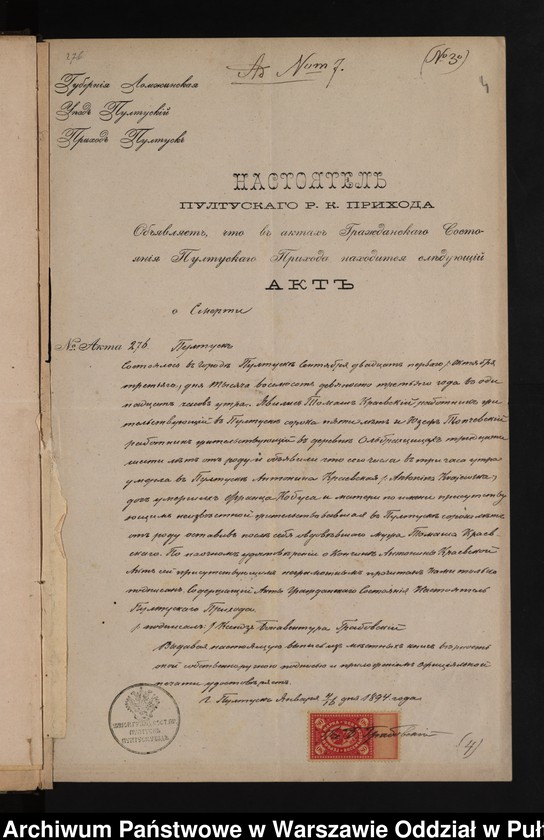 276
Ad Num 7.
(№ 30)
4
Губернія Ломжинская
Уѣздъ Пултускій
Приходъ Пултускъ
НАСТОЯТЕЛЬ
ПУЛТУСКАГО Р. К. ПРИХОДА
Объявляетъ, что въ актахъ Гражданскаго Состо-
янія Пултускаго Прихода находится слѣдующій
АКТЪ
о Смерти
№ Акта 276. Пултускъ
Состоялось въ городѣ Пултускѣ Сентября двадцать перваго / Октября
третьяго / дня тысяча восемьсотъ девяносто третьяго года въ оди
надцать часовъ утра. Явились Томашъ Краевскій работникъ жи
тельствующій въ Пултускѣ сорока пяти лѣтъ и Юзефъ
работникъ жительствующій въ деревнѣ тридцати
шести лѣтъ отъ роду и объявили что сего числа въ три часа утра
умерла въ Пултускѣ Антонина Краевская
дочь умершихъ Кобуса и матери по имени присутству
ющимъ неизвѣстной жительствовавшая въ Пултускѣ сорока лѣтъ
отъ роду оставивъ послѣ себя овдовѣвшаго мужа Томаша Краев
скаго. По настоящемъ удостовѣреніи о кончинѣ Антонины Краевской
Актъ сей присутствующимъ неграмотнымъ прочитанъ Нами только
подписанъ. Содержащій Акты Гражданскаго Состоянія Настоятель
Пултускаго Прихода.
/ подписалъ: / Ксендзъ Бонавентура Грабовскій
Выдавая настоящую выпись изъ метэичныхъ книгъ вѣрность
оной собственноручною подписью и приложеніемъ оффиціальной
печати удостовѣряетъ.
г. Пултускъ Января 4/16 дня 1894 года
Грабовскій
(4)
Archiwum Państwowe w Warszawie Oddział w Puł